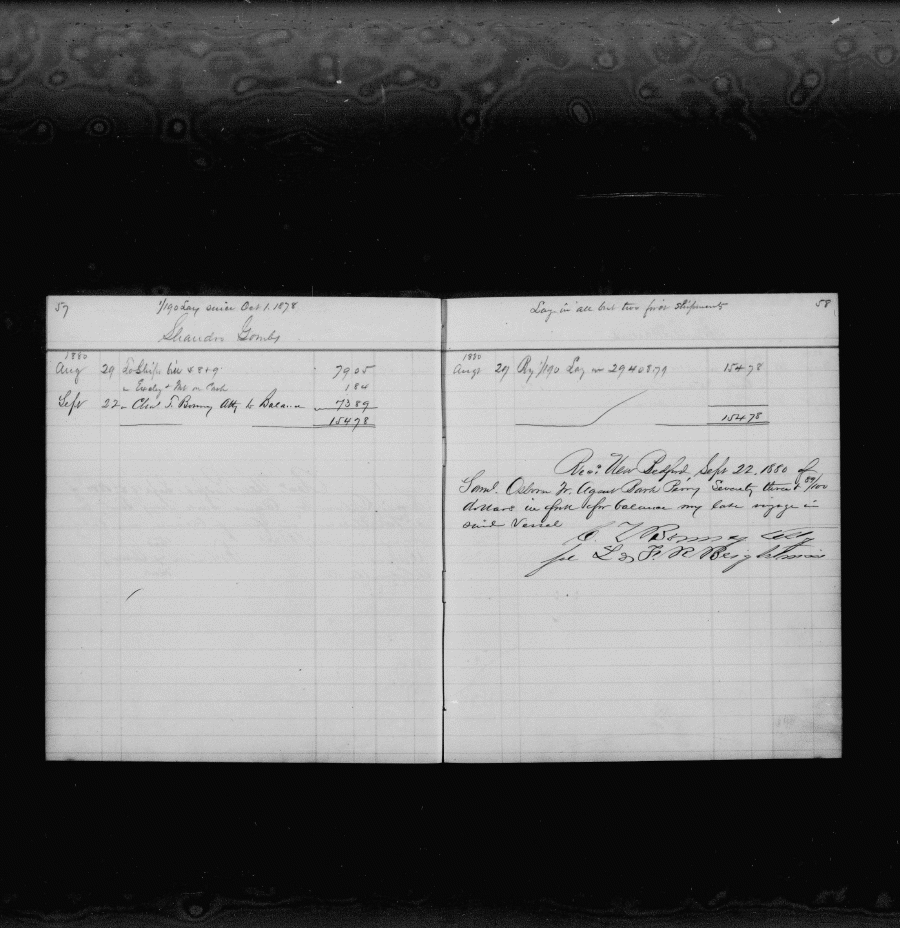 57
1/190 Lay since Oct 1. 1878
Shandro Gombs
1880
Aug 29 To Ship's bill 58 & 9 79 05
" & Int on Cash 1 84
Sept 22 " Chas T. Bonney Atty to Balance 73 89
154 78
58
Lay in all but two first shipments
1880
Augt 29 By 1/190 Lay on 29408 79 154 78
154 78
Recd. New Bedford Sept 22. 1880 of
Saml. Osborn Jr. Agent Bark Perry Seventy three & 89/100
dollars in full for balance my late voyage in
said Vessel
C. T. Bonney Atty